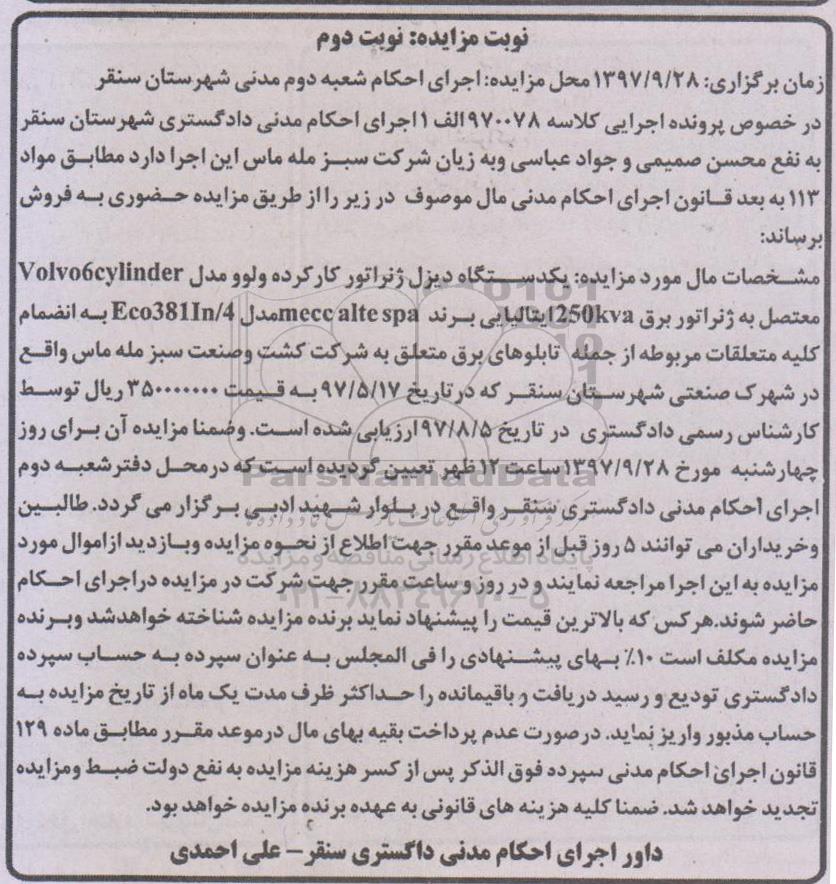 نوبت مزایده: نوبت دوم
زمان برگزاری: ۱۳۹۷/۹/۲۸ محل مزایده: اجرای احکام شعبه دوم مدنی شهرستان سنقر
در خصوص پرونده اجرایی کلاسه ۹۷۰۰۷۸الف ۱ اجرای احکام مدنی دادگستری شهرستان سنقر
به نفع محسن صمیمی و جواد عباسی وبه زیان شرکت سبز مله ماس این اجرا دارد مطابق مواد
۱۱۳ به بعد قانون اجرای احکام مدنی مال موصوف در زیر را از طریق مزایده حضوری به فروش
برساند:
مشخصات مال مورد مزایده: یکدستگاه دیزل ژنراتور کارکرده ولوو مدل Volvo6cylinder
معتصل به ژنراتور برق 250kva ایتالیایی برند mecc alte spa مدل Eco381In/4 به انضمام
کلیه متعلقات مربوطه از جمله تابلوهای برق متعلق به شرکت کشت وصنعت سبز مله ماس واقع
در شهرک صنعتی شهرستان سنقر که در تاریخ ۹۷/۵/۱۷ به قیمت ۳۵۰۰۰۰۰۰۰ ریال توسط
کارشناس رسمی دادگستری در تاریخ ۹۷/۸/۵ ارزیابی شده است. وضمنا مزایده آن برای روز
چهارشنبه مورخ ۱۳۹۷/۹/۲۸ ساعت ۱۲ ظهر تعیین گردیده است که درمحل دفترشعبه دوم
اجرای احکام مدنی دادگستری سنقر واقع در بلوار شهید ادبی برگزار می گردد. طالبین
وخریداران می توانند ۵ روز قبل از موعد مقرر جهت اطلاع از نحوه مزایده وبازدید ازاموال مورد
مزایده به این اجرا مراجعه نمایند و در روز و ساعت مقرر جهت شرکت در مزایده دراجرای احکام
حاضر شوند.هرکس که بالاترین قیمت را پیشنهاد نماید برنده مزایده شناخته خواهدشد وبرنده
مزایده مکلف است ۱۰٪ بهای پیشنهادی را فی المجلس به عنوان سپرده به حساب سپرده
دادگستری تودیع و رسید دریافت و باقیمانده را حداکثر ظرف مدت یک ماه از تاریخ مزایده به
حساب مذبور واریز نماید. درصورت عدم پرداخت بقیه بهای مال درموعد مقرر مطابق ماده ۱۲۹
قانون اجرای احکام مدنی سپرده فوق الذکر پس از کسر هزینه مزایده به نفع دولت ضبط ومزایده
تجدید خواهد شد. ضمنا کلیه هزینه های قانونی به عهده برنده مزایده خواهد بود.
داور اجرای احکام مدنی داگستری سنقر – علی احمدی
ParsNamadData
پایگاه اطلاع رسانی مناقصه و مزایده
۰۲۱-۸۸۳۴۹۶۷۰-۵